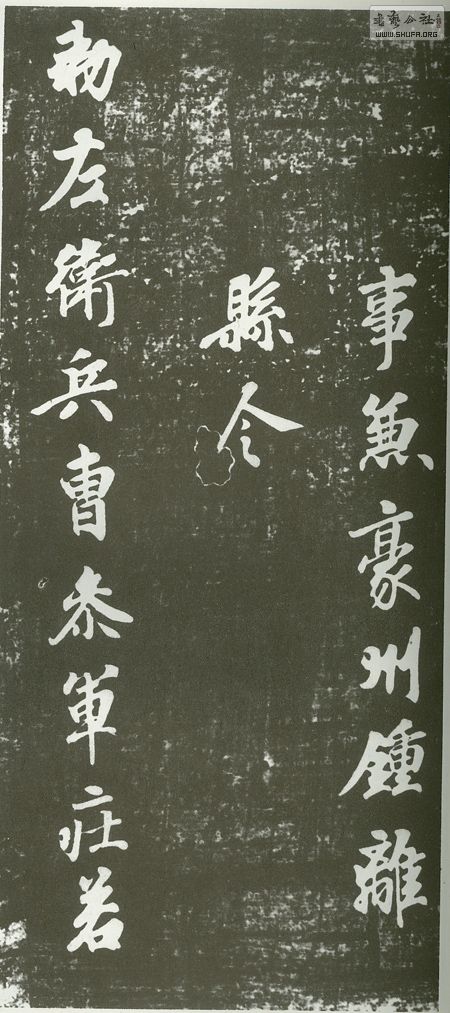 事兼豪州鍾離
縣令
勑左衛兵曹叅軍莊若
書藝公社
WWW.SHUFA.ORG